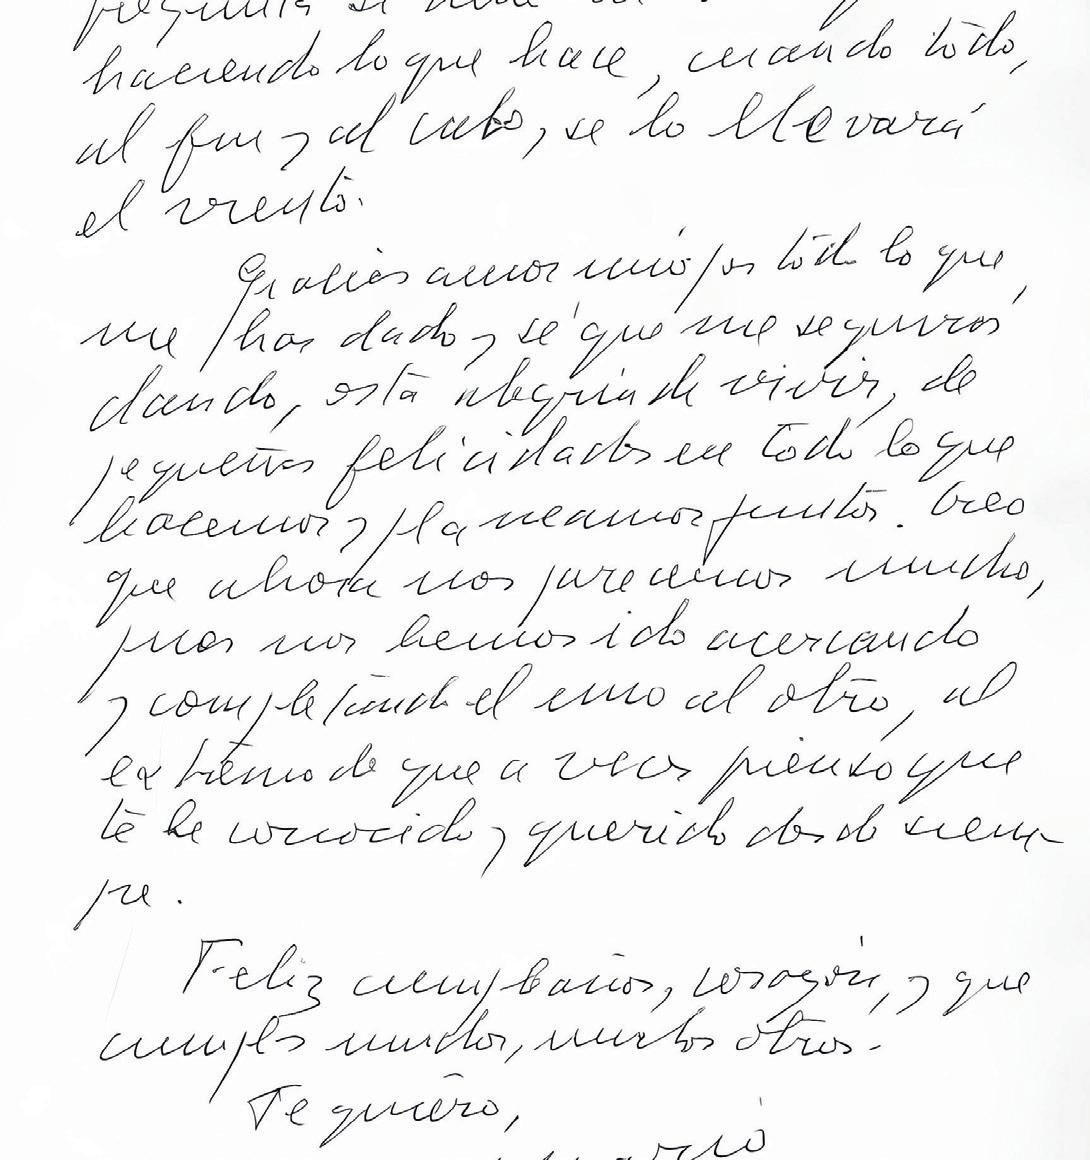 haciendo lo que hace, cuando todo,
al fin y al cabo, se lo llevará
el viento.
Gracias amor mío por todo lo que,
me has dado y sé que me seguirás
dando, esta alegría de vivir, de
pequeñas felicidades en todo lo que
hacemos y planeamos juntos. Creo
que ahora nos parecemos mucho,
pues nos hemos ido acercando
y completando el uno al otro, al
extremo de que a veces pienso que
te he conocido y querido desde siem-
pre.
Feliz cumpleaños, corazón, y que
cumplas muchos, muchos otros.
Te quiero,